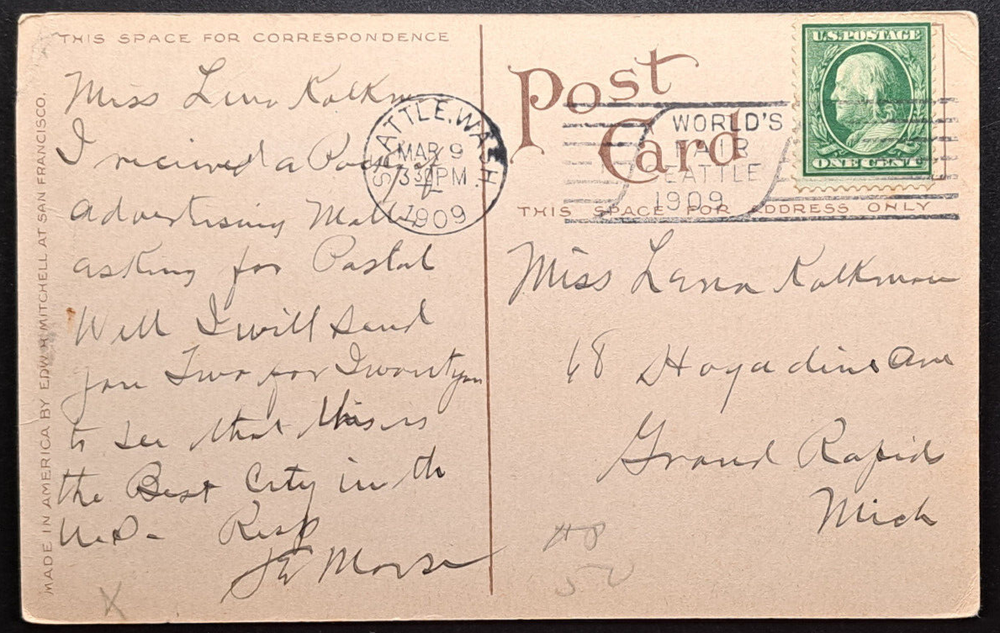 THIS SPACE FOR CORRESPONDENCE
MADE IN AMERICA BY EDW. H. MITCHELL AT SAN FRANCISCO.
Miss Lena Kalkman
I recieved a
advertising
asking for Postal
Well I will send
you Two for I want you
to see that this is
the Best City in the
U.S. Resp
J E Morse
X
SEATTLE, WASH.
MAR 9
3 30 PM
1909
Post
Card
WORLD'S
FAIR
SEATTLE
1909
U.S. POSTAGE
ONE CENT
THIS SPACE FOR ADDRESS ONLY
Miss Lena Kalkman
68 Ave
Grand Rapids
Mich